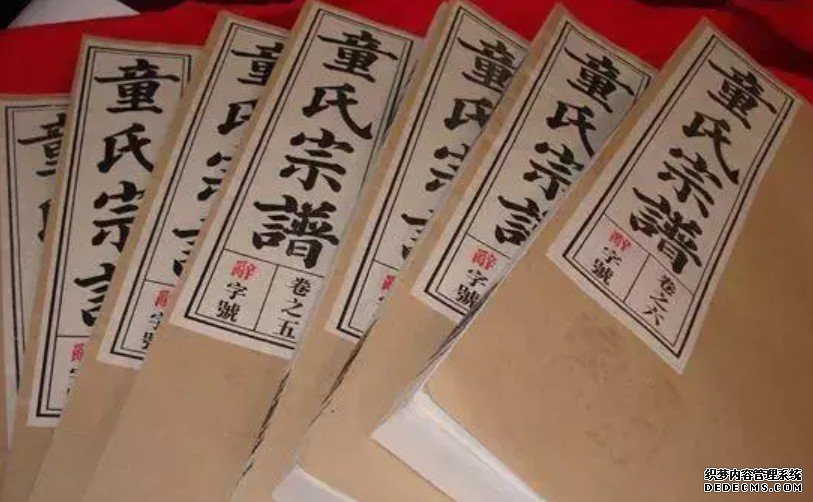 童
童氏宗譜
辭
童氏宗譜
辭字號
童氏宗譜
卷之五
辭字號
童氏宗譜
童氏宗譜
辭字號
童氏宗譜
卷之六
辭字號
织梦内容管理系统
DEDECMS.COM